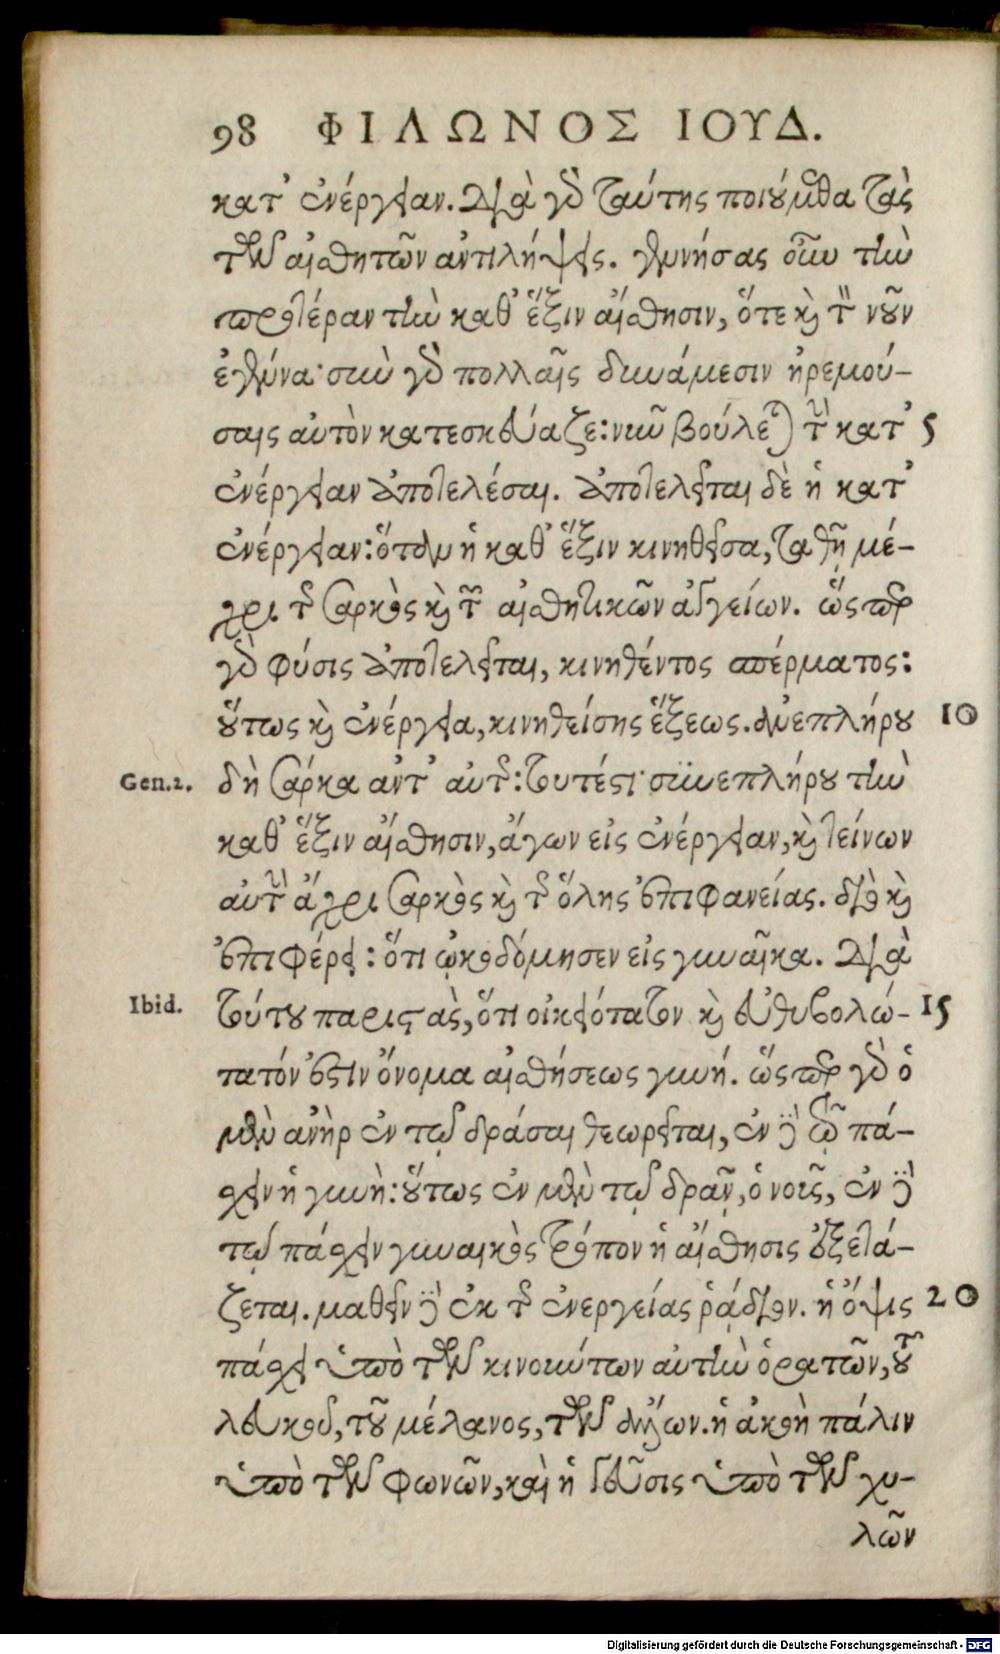 98 ΦΙΛΩΝΟΣ ΙΟΥΔ.
κατ' ἐνέργειαν. διὰ γὰρ ταύτης ποιούμεθα τὰς
τῶν αἰσθητῶν ἀντιλήψεις. γεννήσας οὖν τὴν
προτέραν τὴν καθ' ἕξιν αἴσθησιν, ὅτε καὶ τὸν νοῦν
ἐγέννα· σὺν γὰρ πολλαῖς δυνάμεσιν ἠρεμού-
σαις αὐτὸν κατεσκεύαζε: νῦν βούλεται τὴν κατ' 5
ἐνέργειαν ἀποτελέσαι. ἀποτελεῖται δὲ ἡ κατ'
ἐνέργειαν: ὅταν ἡ καθ' ἕξιν κινηθεῖσα, ταθῇ μέ-
χρι τῆς σαρκὸς καὶ τῶν αἰσθητικῶν ἀγγείων. ὥσπερ
γὰρ φύσις ἀποτελεῖται, κινηθέντος σπέρματος:
οὕτως καὶ ἐνέργεια, κινηθείσης ἕξεως. ἀνεπλήρου 10
Gen.2. δὴ σάρκα ἀντ' αὐτῆς: τουτέστι· συνεπλήρου τὴν
καθ' ἕξιν αἴσθησιν, ἄγων εἰς ἐνέργειαν, καὶ τείνων
αὐτὴν ἄχρι σαρκὸς καὶ τῆς ὅλης ἐπιφανείας. διὸ καὶ
ἐπιφέρει: ὅτι ᾠκοδόμησεν εἰς γυναῖκα. διὰ
Ibid. τούτου παριστὰς, ὅτι οἰκειότατον καὶ εὐθυβολώ- 15
τατόν ἐστιν ὄνομα αἰσθήσεως γυνή. ὥσπερ γὰρ ὁ
μὲν ἀνὴρ ἐν τῷ δρᾶσαι θεωρεῖται, ἐν δὲ τῷ πά-
σχειν ἡ γυνὴ: οὕτως ἐν μὲν τῷ δρᾷν, ὁ νοῦς, ἐν δὲ
τῷ πάσχειν γυναικὸς τρόπον ἡ αἴσθησις ἐξετά-
ζεται. μαθεῖν δὲ ἐκ τῆς ἐνεργείας ῥᾴδιον. ἡ ὄψις 20
πάσχει ὑπὸ τῶν κινούντων αὐτὴν ὁρατῶν, τοῦ
λευκοῦ, τοῦ μέλανος, τῶν ἄλλων. ἡ ἀκοὴ πάλιν
ὑπὸ τῶν φωνῶν, καὶ ἡ γεῦσις ὑπὸ τῶν χυ-
λῶν
Digitalisierung gefördert durch die Deutsche Forschungsgemeinschaft - DFG